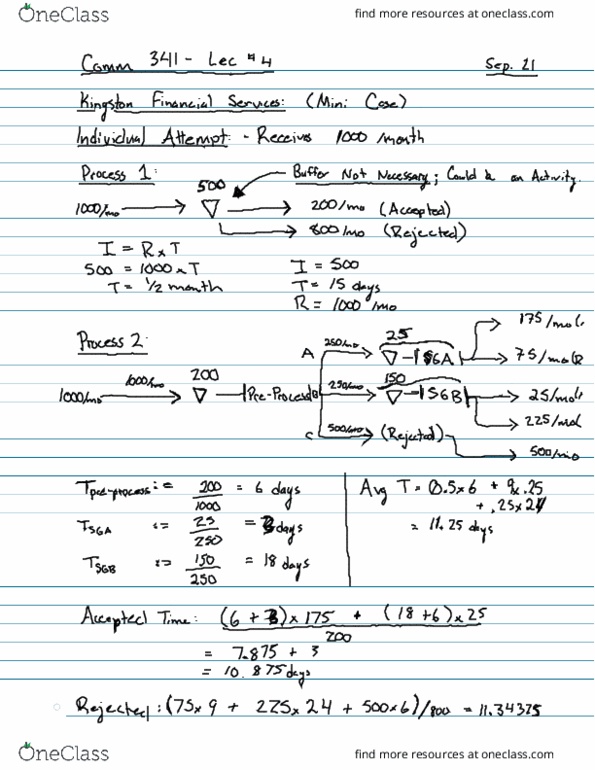 OneClass find more resources at oneclass.com
Comm 341 - Lec #4 Sep. 21
Kingston Financial Services: (Mini Case)
Individual Attempt: - Receives 1000 /month
Process 1: Buffer Not Necessary; Could be an Activity.
500
1000/mo 200/mo (Accepted)
800/mo (Rejected)
I = R x T
500 = 1000 x T I = 500
T = 1/2 month T = 15 days
R = 1000 /mo
175/mo
Process 2: A 250/mo 25 SGA 75/mo R
1000/mo 1000/mo 200 Pre-Process B 250/mo 150 SGB 25/mo
225/mo
C 500/mo (Rejected) 500/mo
Tpre-process := 200/1000 = 6 days Avg T = 0.5x6 + 9x.25 + .25x24
TSGA := 25/250 = 3 days = 11.25 days
TSGB := 150/250 = 18 days
Accepted Time: (6 + 3) x 175 + (18+6) x 25
200
= 7.875 + 3
= 10.875 days
Rejected: (75x9 + 225x24 + 500x6)/800 = 11.34375
OneClass find more resources at oneclass.com